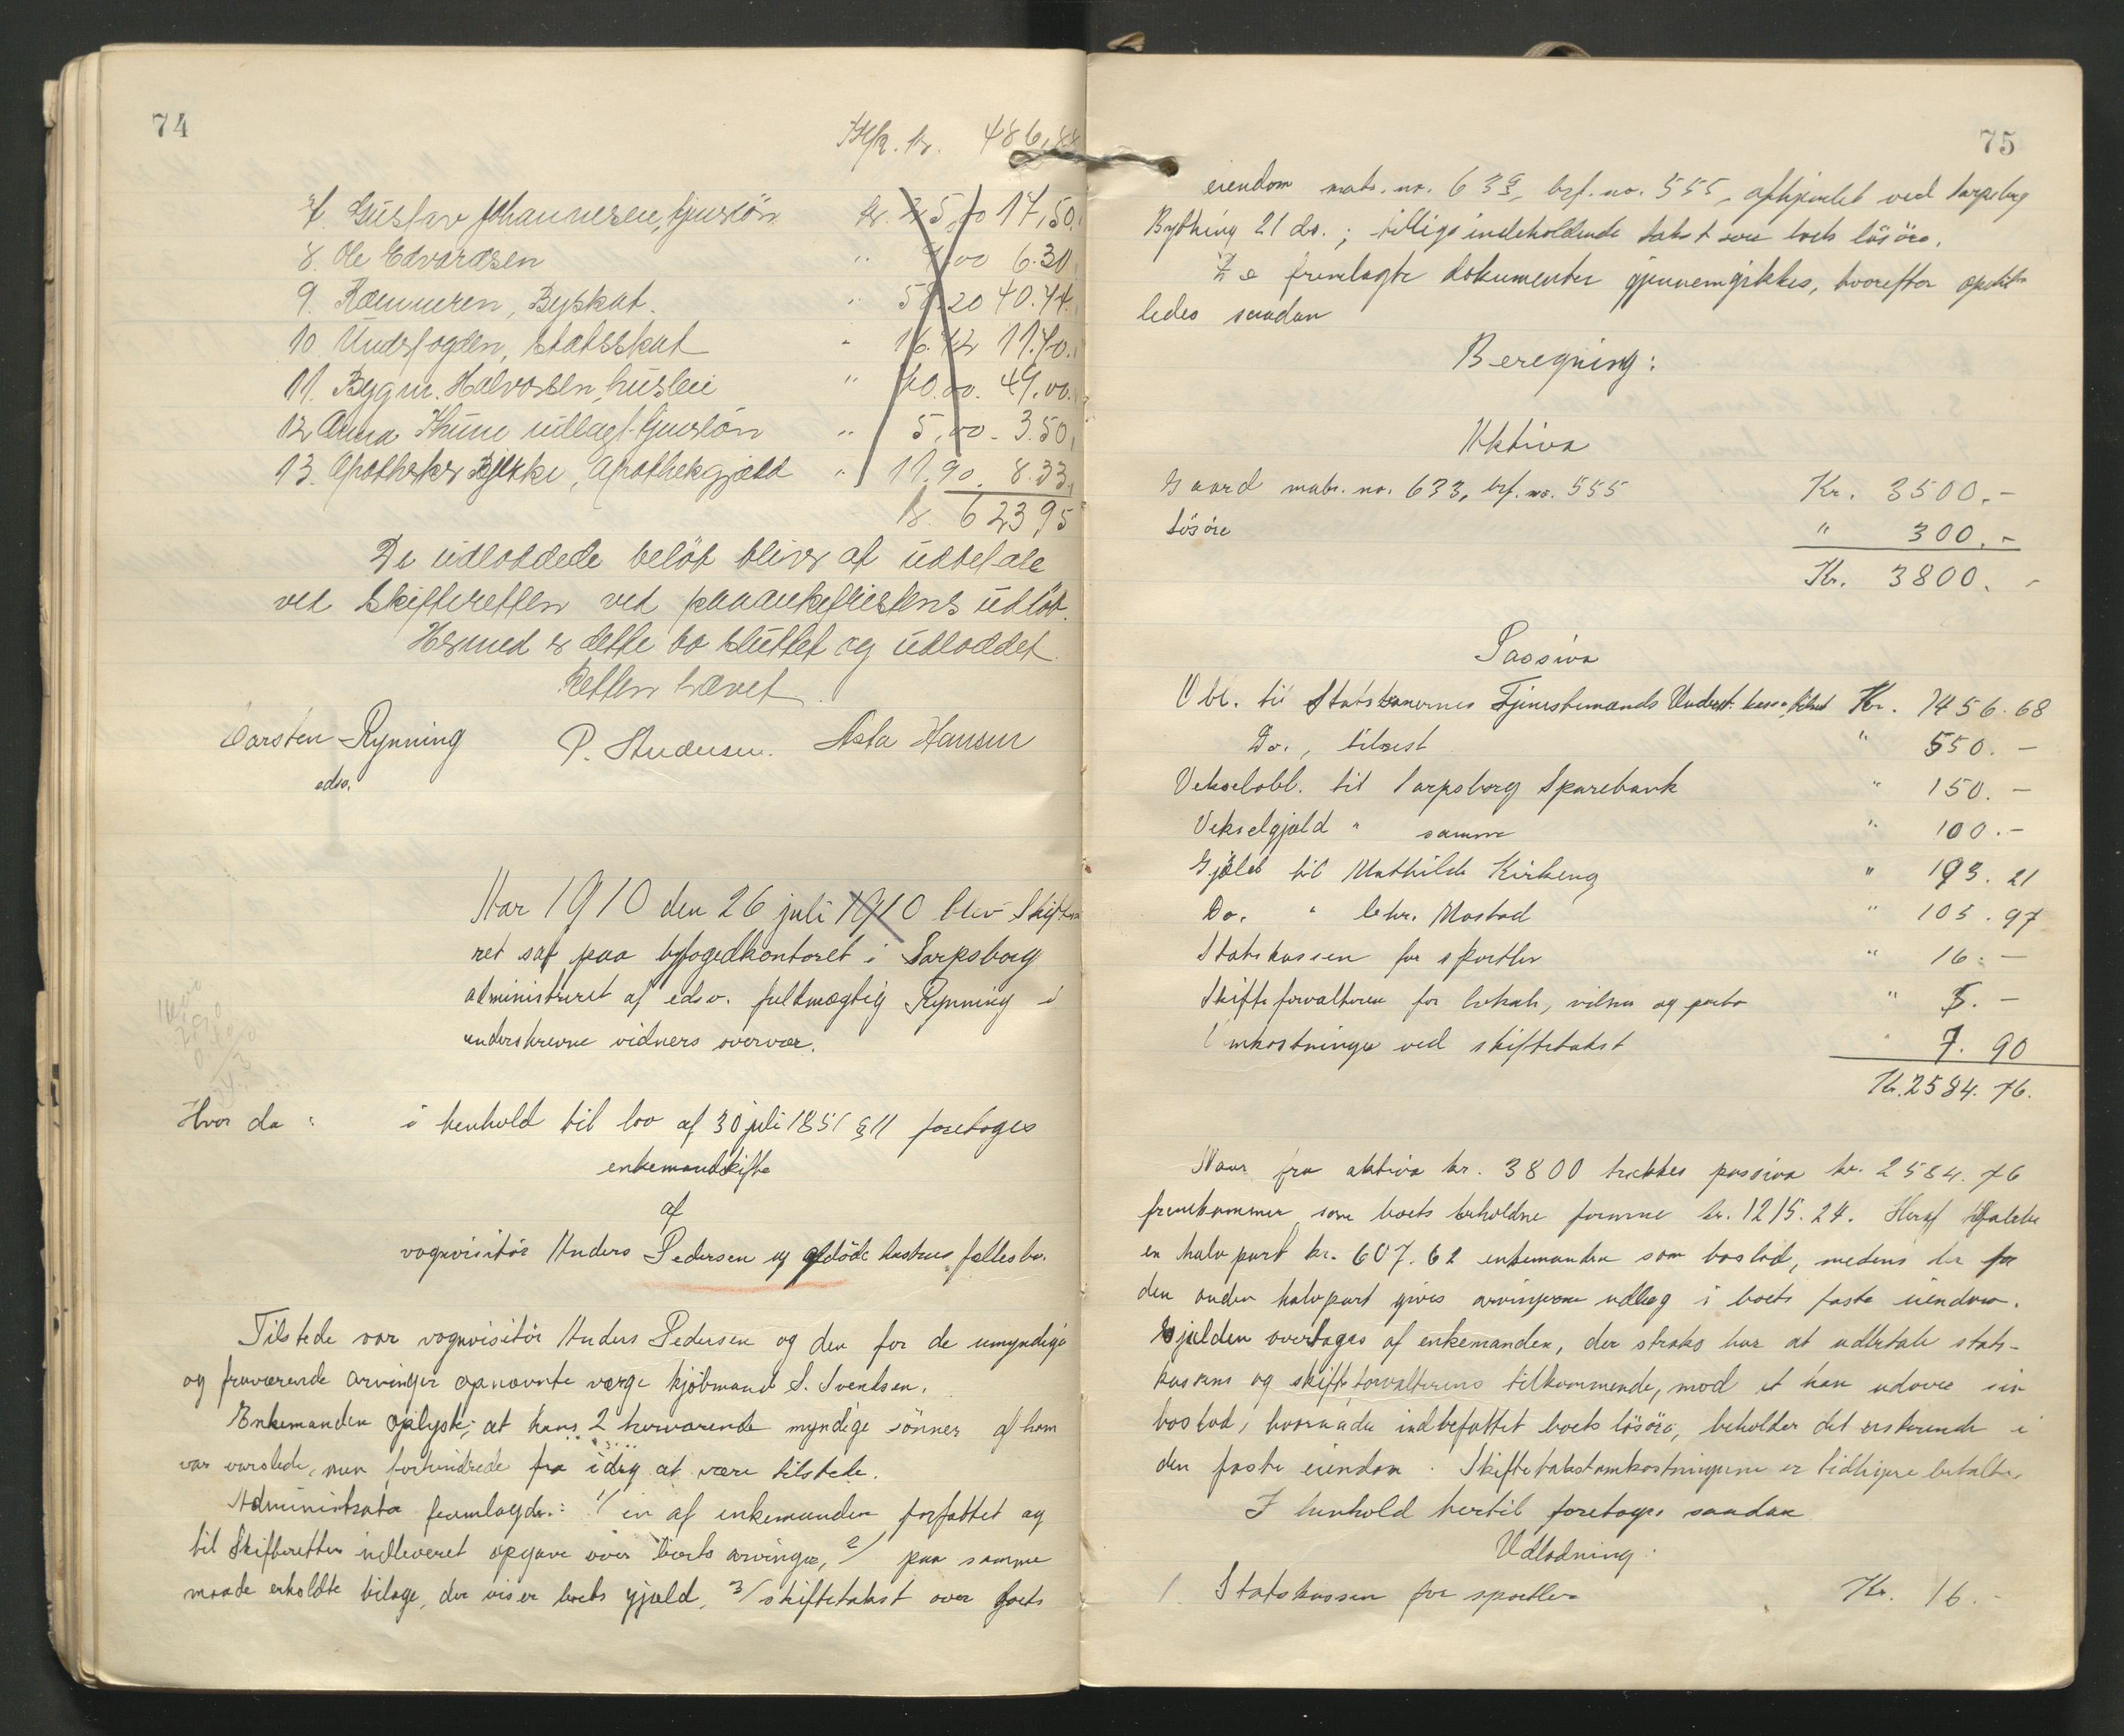 74
Tfr. kr. 486,88
7. Gustav Johannesen, tjenrløn kr. 25,00 17,50.
8. Ole Edvardsen " 9,00 6.30
9. Kæmneren, Byskat. " 58.20 40.74.
10. Underfogden, statsskat " 16.72 11.70.
11. Bygm. Halvorsen, husleie " 70.00. 49.00.
12 Anna Thune utlagt tjenrløn " 5,00 - 3.50,
13. Apotheker Bjekke, Apothekgjæld " 11.90. 8.33,
kr. 623,95
De udloddede beløb bliver at udbetale
ved Skifteretten ved paaankefristens udløb.
Hermed er dette bo sluttet og udloddet.
Retten hævet.
Carsten Rynning P. Andersen. Asta Hansen
edsv.
Aar 1910 den 26 juli 1910 blev Skifte
ret sat paa byfogedkontoret i Sarpsborg
administreret af edsv. fuldmægtig Rynning i
underskrevne vidners overvær.
Hvor da: i henhold til lov af 30 juli 1851 § 11 foretoges
enkemandskifte
af
vognvisitør Anders Pedersen og afdøde hustrus fællesbo.
Tilstede var vognvisitør Anders Pedersen og den for de umyndige
og fraværende arvinger opnævnte værge kjøbmand S. Svendsen.
Enkemanden oplyste, at hans 2 herværende myndige sønner af ham
var varslede, men forhindrede fra idag at være tilstede.
Administrator fremlagde: 1/ en af enkemanden forfattet og
til Skifteretten indleveret opgave over boets arvinger, 2/ paa samme
maade erholdte bilage, der viser boets gjæld, 3/ skiftetakst over boets
75
eiendom matr. no. 633, brf. no. 555, afhjemlet ved Sarpsborg
Bything 21 ds.; tillige indeholdende takst over boets løsøre.
De fremlagte dokumenter gjennemgikkes, hvorefter opstil-
ledes saadan
Beregning:
Aktiva
Gaard matr. no. 633, brf. no. 555 Kr. 3500.-
Løsøre " 300.-
Kr. 3800.-
Passiva
Obl. til Statsbanernes Tjenestemands Underst. kasse, Kr. 1456.68
Do., " 550.-
Vekselobl. til Sarpsborg Sparebank " 150.-
Vekselgjæld " samme " 100.-
Gjæld til Mathilde Kirkeng " 193.21
Do. " Chr. Mostad " 105.97
Statskassen for sportler " 16.-
Skifteforvalteren for lokale, vidner og porto " 5.-
Omkostninger ved skiftetakst " 7.90
Kr. 2584.76.
Naar fra aktiva kr. 3800 trækkes passiva kr. 2584.76
fremkommer som boets beholdne formue kr. 1215.24. Heraf tilfalder
en halvpart kr. 607.62 enkemanden som boslod, medens der for
den anden halvpart gives arvingerne udlæg i boets faste eiendom.
Gjælden overtages af enkemanden, der straks har at udbetale stats-
kassens og skifteforvalterens tilkommende, mod at han udover sin
boslod, hvorunder indbefattet boets løsøre, beholder det resterende i
den faste eiendom. Skiftetakstomkostningerne er tidligere betalte.
I henhold hertil foretoges saadan
Udlodning:
1. Statskassen for sportler Kr. 16.-